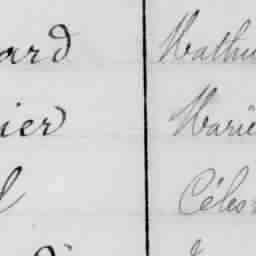 ard Mathu
ier Marie
l Céles